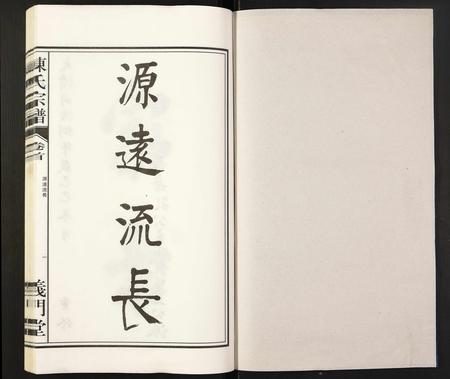 源遠流長
陳氏宗譜
卷首
源遠流長
一
義門堂